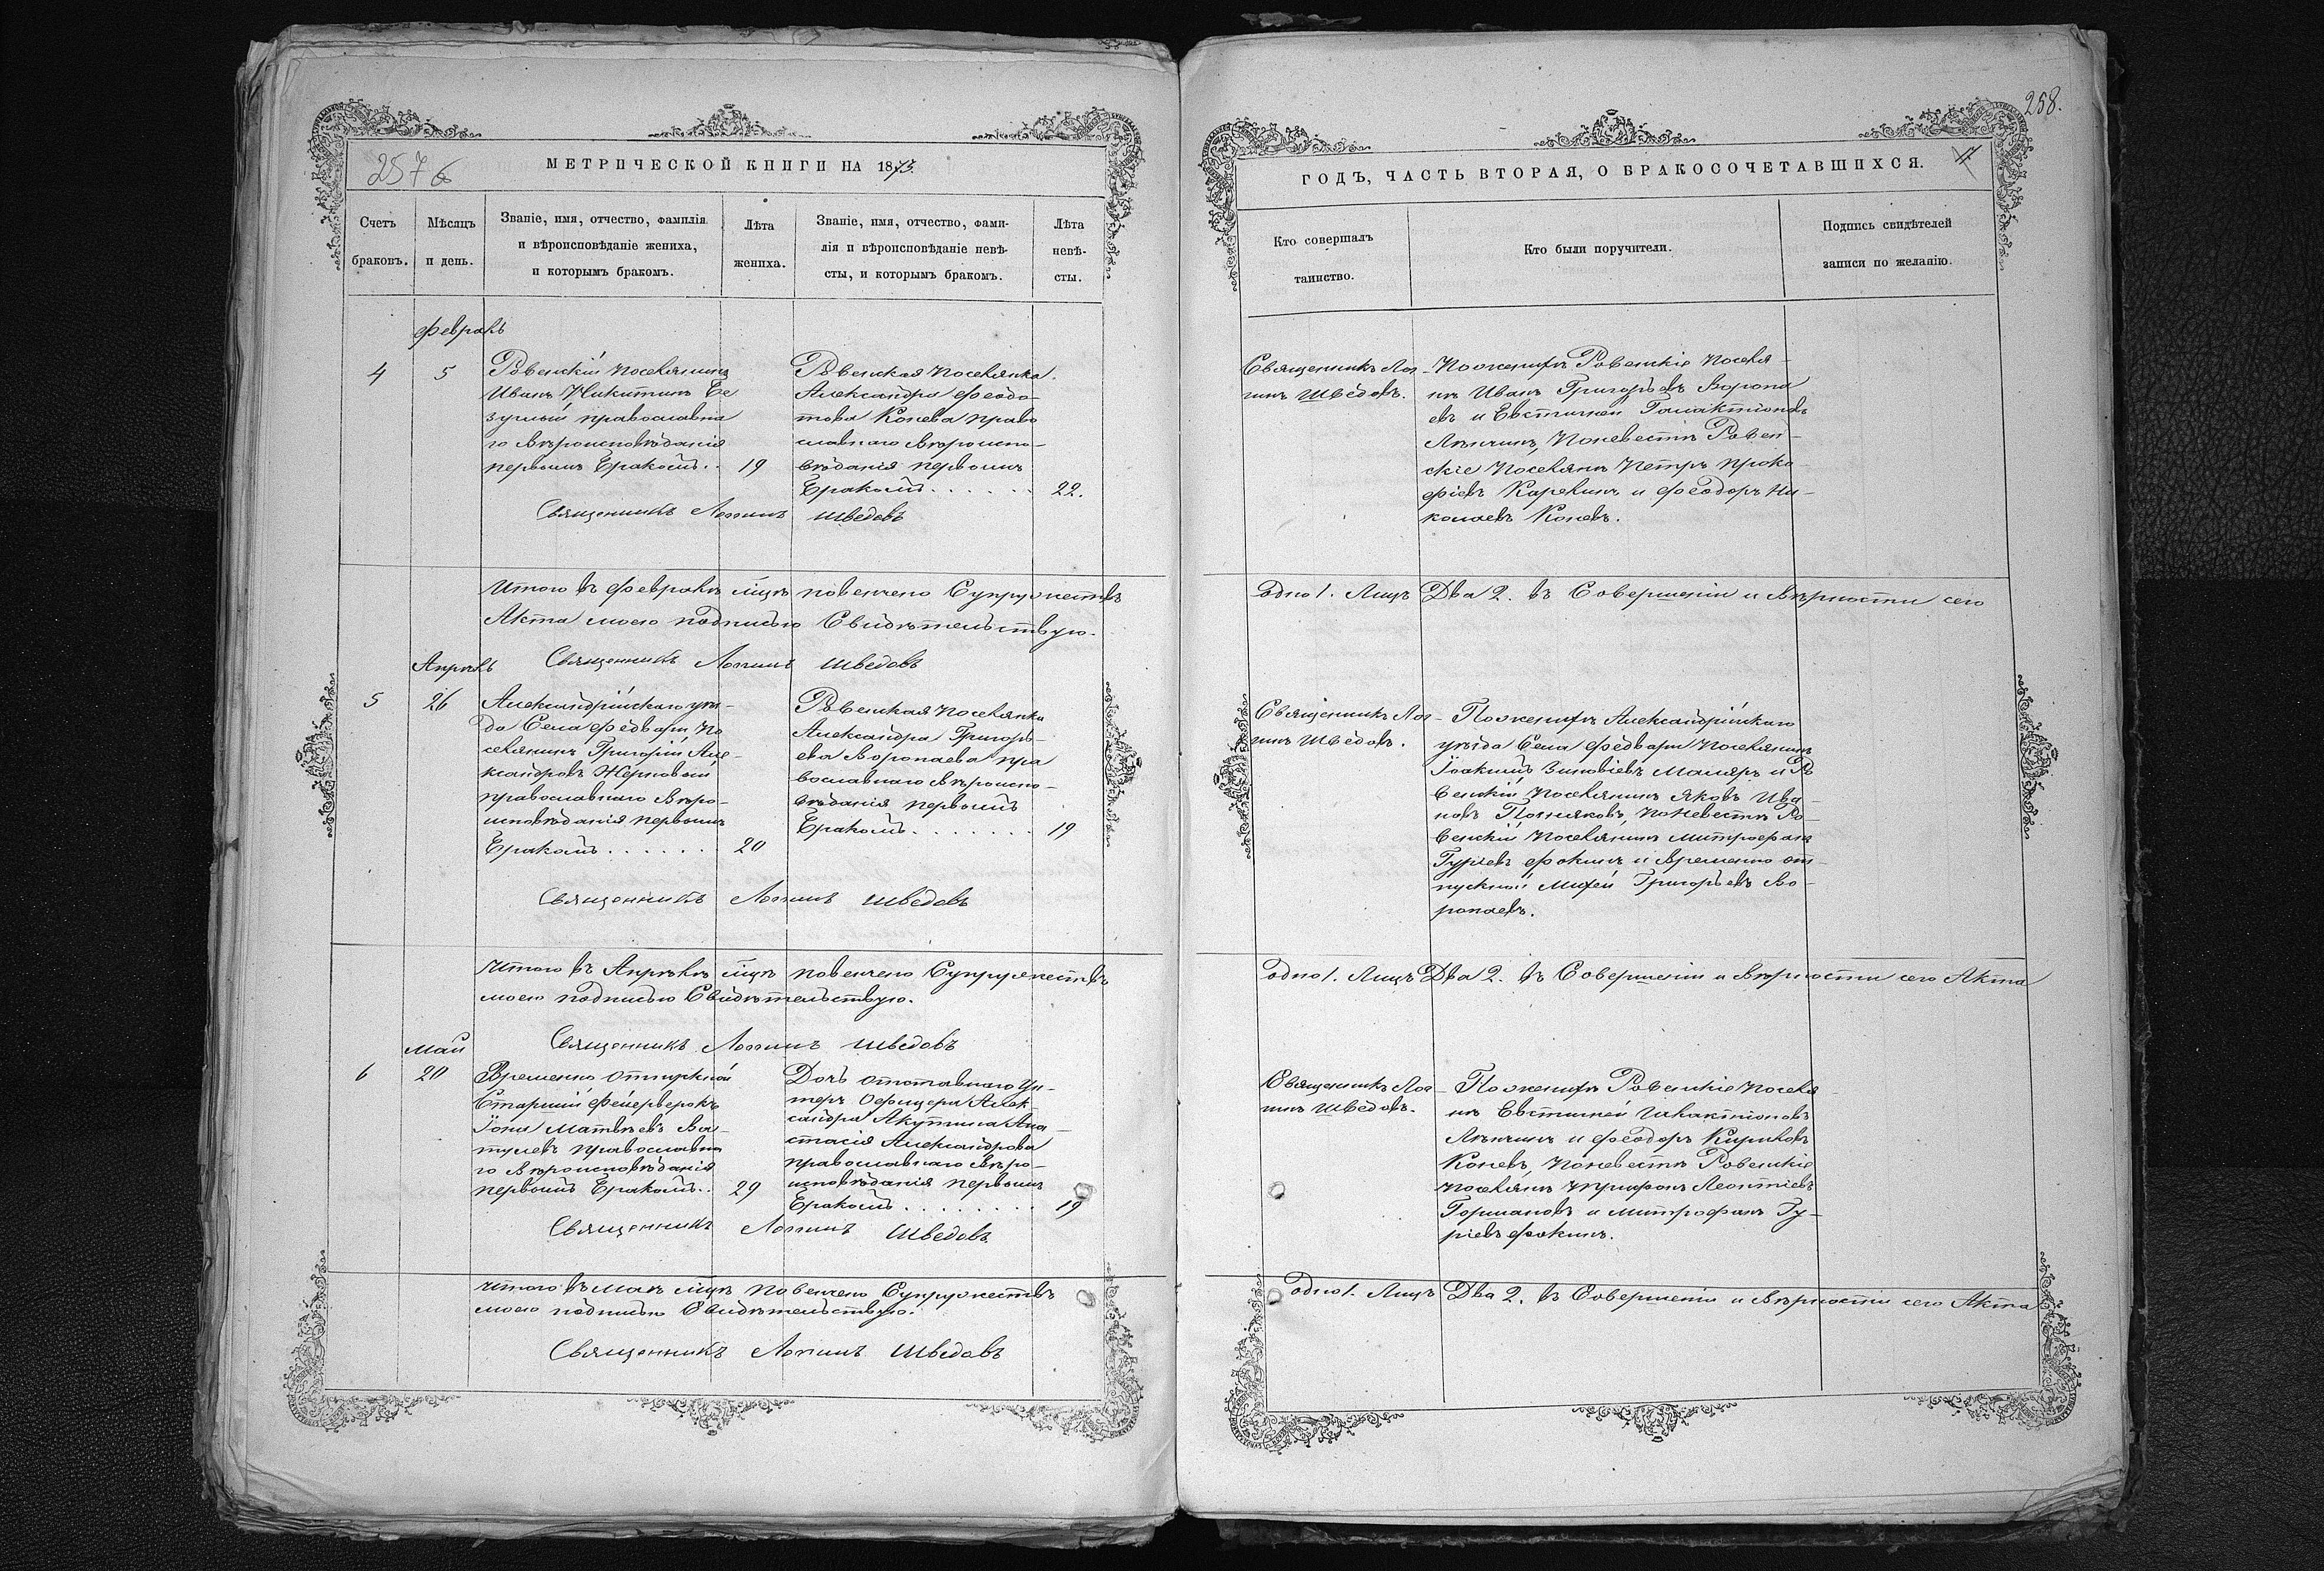 257 б
МЕТРИЧЕСКОЙ КНИГИ НА 1873.
Счетъ
браковъ.
Мѣсяцъ
и день.
Званіе, имя, отчество, фамилія
и вѣроисповѣданіе жениха,
и которымъ бракомъ.
Лѣта
жениха.
Званіе, имя, отчество, фами-
лія и вѣроисповѣданіе невѣ-
сты, и которымъ бракомъ.
Лѣта
невѣ-
сты.
Февраль
4
5
Ровенскій поселянинъ
Иванъ Никитинъ Бе
зуглый православна
го Вѣроисповѣданія
первымъ Бракомъ..
19
Ровенская поселянка
Александра Феодо-
това Конева право
славнаго Вѣроиспо-
вѣданія первымъ
Бракомъ......
22.
Священникъ Логгинъ Шведовъ
Итого въ Февралѣ м҃цѣ повенчено Супружествъ
Акта моею подписью Свидѣтельствую.
Священникъ Логгинъ Шведовъ
Апрѣль
5
26
Александрійскаго уѣз-
да Села Федвари По
селянинъ Григорій Але-
ксандровъ Жерновый
православнаго Вѣро-
исповѣданія первымъ
Бракомъ......
20
Ровенская поселянка
Александра Григорь-
ева Воропаева пра
вославнаго Вѣроиспо-
вѣданія первымъ
Бракомъ.......
19
Священникъ Логгинъ Шведовъ
Итого въ Апрѣлѣ м҃цѣ повенчено Супружествъ
моею подписью Свидѣтельствую.
Священникъ Логгинъ Шведовъ
Май
6
20
Временно отпускной
Старшій Фейерверкъ
Іона Матвѣевъ Ва-
тулевъ православна
го Вѣроисповѣданія
первымъ Бракомъ..
29
Дочь отставнаго Ун-
теръ Офицера Алек-
сандра Акутина Ана-
стасія Александрова
православнаго Вѣро-
исповѣданія первымъ
Бракомъ........
19
Священникъ Логгинъ Шведовъ
Итого въ Маѣ м҃цѣ повенчено Супружествъ
моею подписью Свидѣтельствую.
Священникъ Логгинъ Шведовъ
258.
ГОДЪ, ЧАСТЬ ВТОРАЯ, О БРАКОСОЧЕТАВШИХСЯ.
Кто совершалъ
таинство.
Кто были поручители.
Подпись свидѣтелей
записи по желанію.
Священникъ Лог-
гинъ Шведовъ.
По женихѣ Ровенскіе поселя-
не Иванъ Григорьевъ Воропа
евъ и Евстигней Галактіоновъ
Лянчинъ, по невестѣ Ровен-
скіе поселяне Петръ Проко-
фіевъ Карекинъ и Феодоръ Ни-
колаевъ Коневъ.
одно 1. Лицъ Два 2. въ Совершеніи и Вѣрности сего
Священникъ Лог-
гинъ Шведовъ.
По женихѣ Александрійскаго
уѣзда Села Федвари поселянинъ
Іоакимъ Зиновіевъ Маляръ и Ро
венскій поселянинъ Яковъ Ива-
новъ Поляковъ, по невестѣ Ро-
венскій поселянинъ Митрофанъ
Гуріевъ Фокинъ и Временно от-
пускной Михей Григорьевъ Во-
ропаевъ.
одно 1. Лицъ Два 2. въ Совершеніи и Вѣрности сего Акта
Священникъ Лог-
гинъ Шведовъ.
По женихѣ Ровенскіе поселя-
не Евстигней Галактіоновъ
Лянчинъ и Феодоръ Кириловъ
Коневъ, по невестѣ Ровенскіе
поселяне Трифонъ Леонтіевъ
Гормановъ и Митрофанъ Гу-
ріевъ Фокинъ.
одно 1. Лицъ Два 2. въ Совершеніи и Вѣрности сего Акта